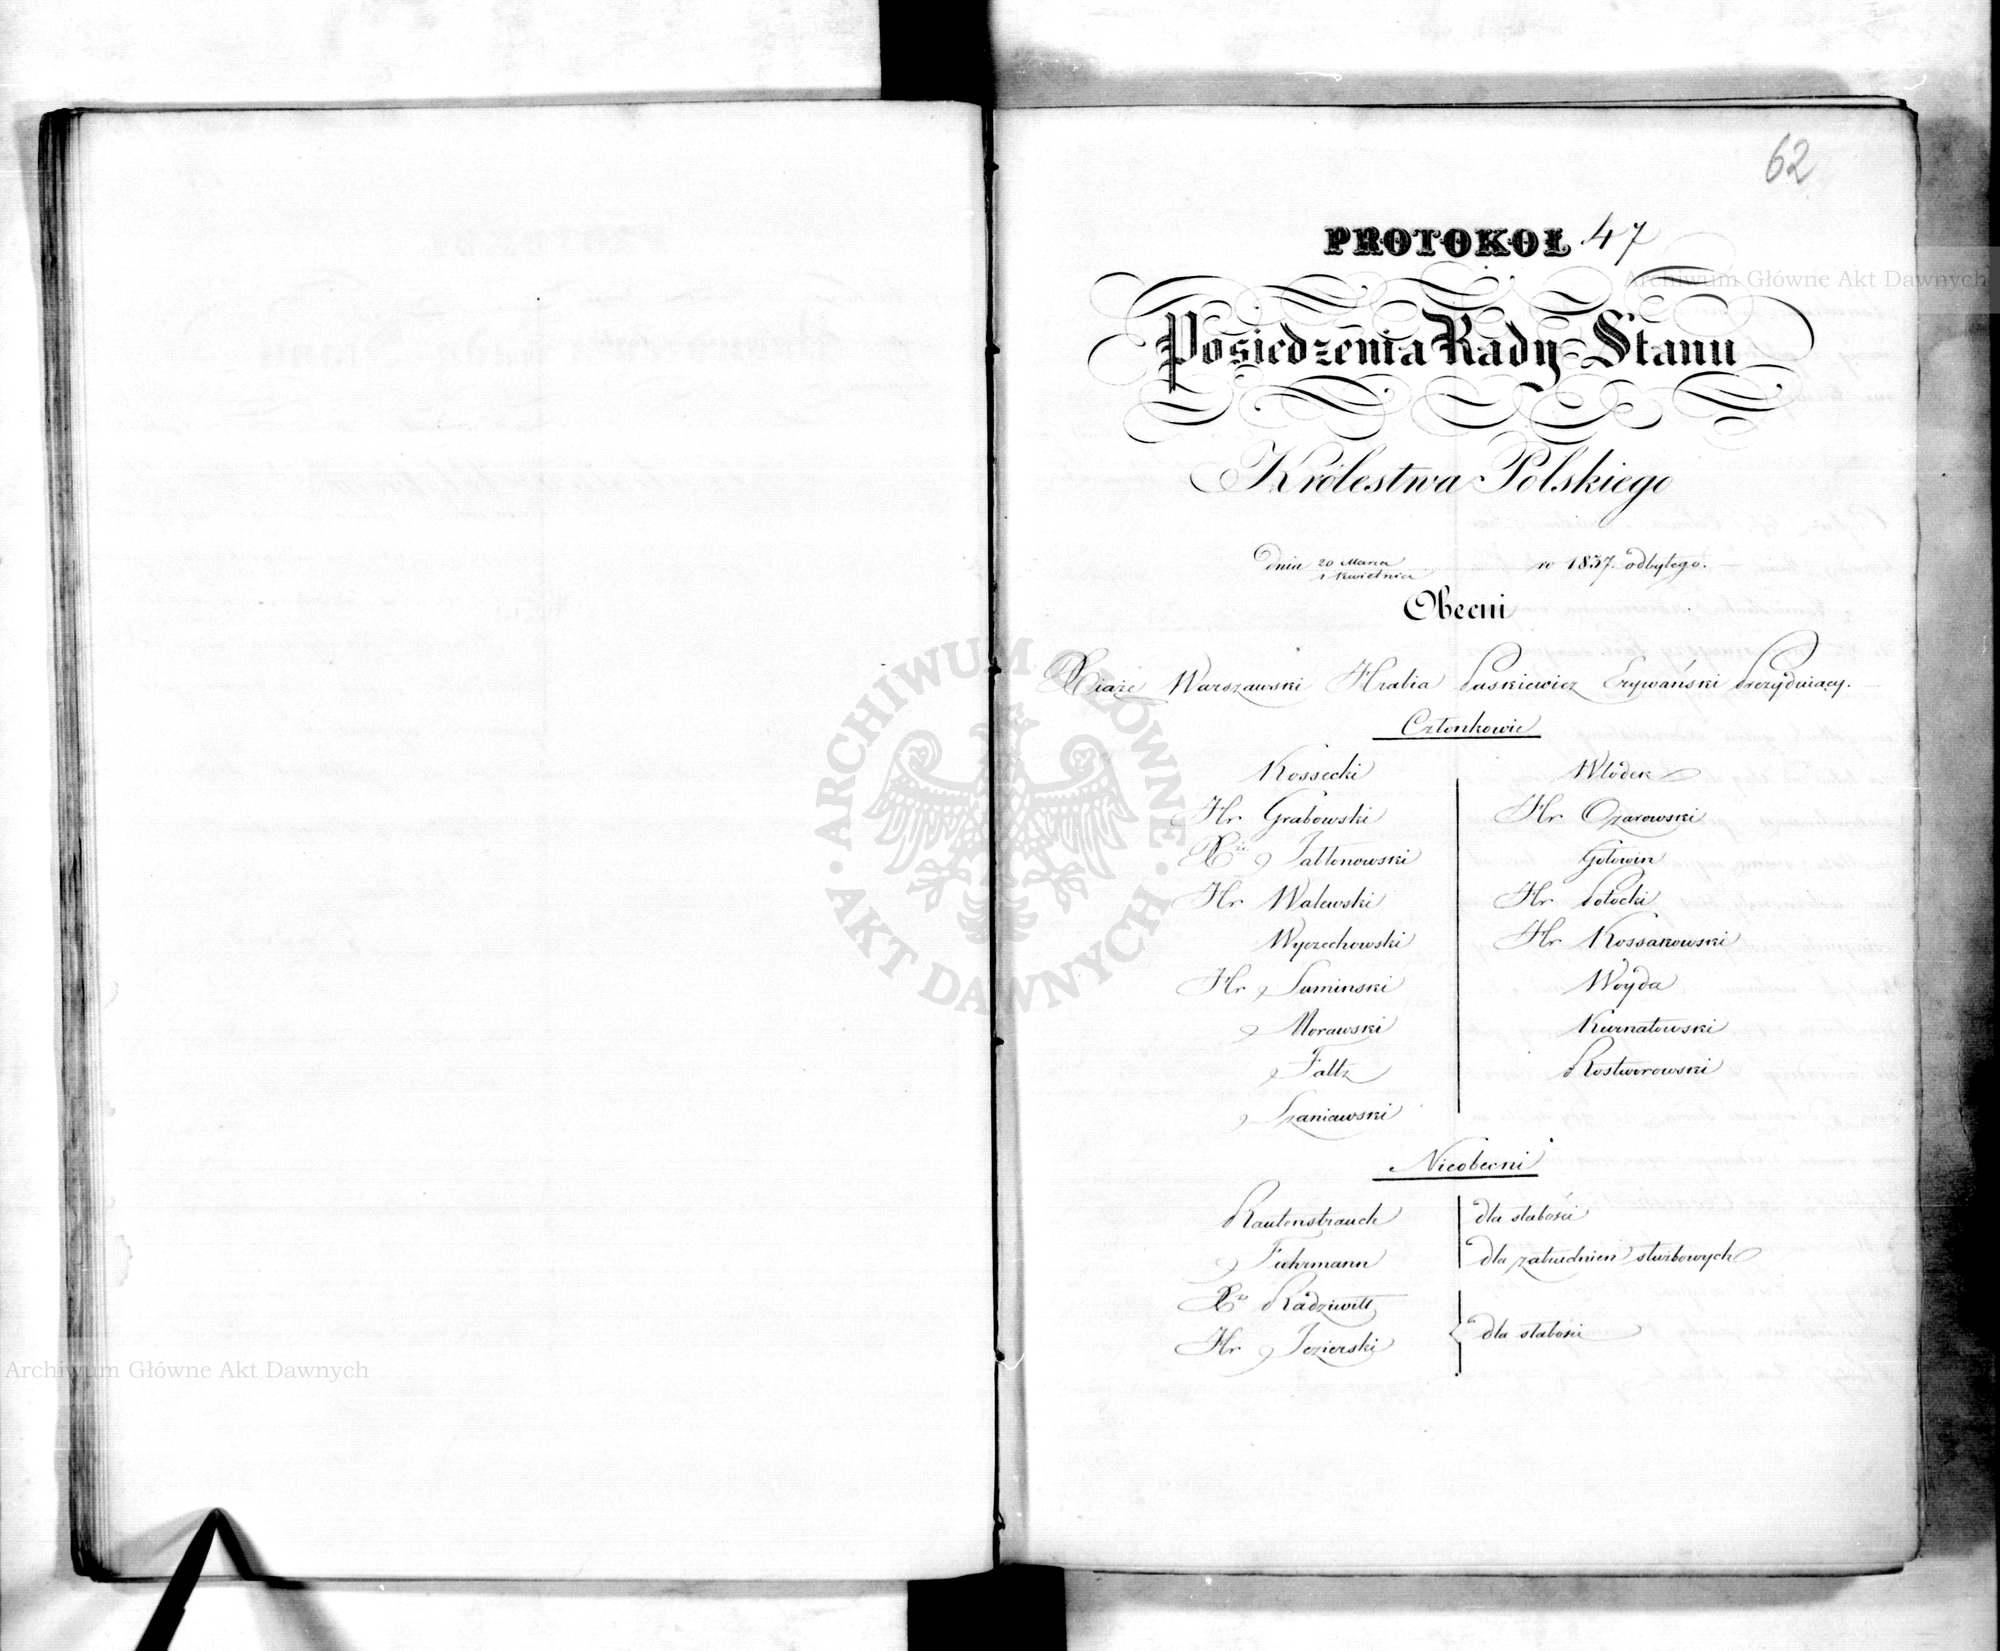 62
PROTOKOŁ 47
Posiedzenia Rady Stanu
Królestwa Polskiego
dnia 20 Marca / 1 Kwietnia w 1837. odbytego.
Obecni
Xiąże Warszawski Hrabia Paskiewicz Erywański Prezyduiący.
Członkowie
Kossecki
Hr. Grabowski
Xże Jabłonowski
Hr. Walewski
Wyczechowski
Hr. Suminski
Morawski
Faltz
Szaniawski
Włodek
Hr. Ożarowski
Gołowin
Hr. Potocki
Hr. Kossakowski
Woyda
Kurnatowski
Rostworowski
Nieobecni
Rautenstrauch dla słabości
Fuhrmann dla zatrudnień służbowych
Xże Radziwiłł
Hr. Jezierski
dla słabości
Archiwum Główne Akt Dawnych
Archiwum Główne Akt Dawnych
ARCHIWUM GŁÓWNE
AKT DAWNYCH